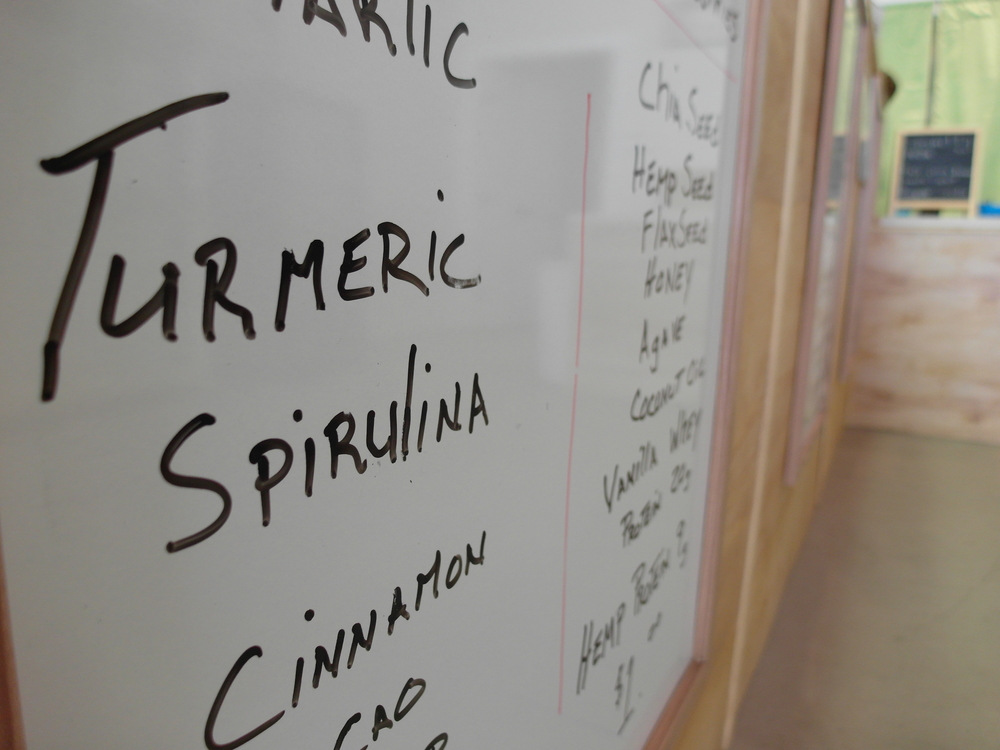 GARlIC
TURMERIC
SpiRUliNA
CiNNAMON
CAO
Chia SEEd
HEMp SEEd
FlAxSEEd
HONEY
AgAVE
COCONUT OIL
VANillA WHEY
PROTEiN 22g
HEMP PROTEiN 9g
$1.